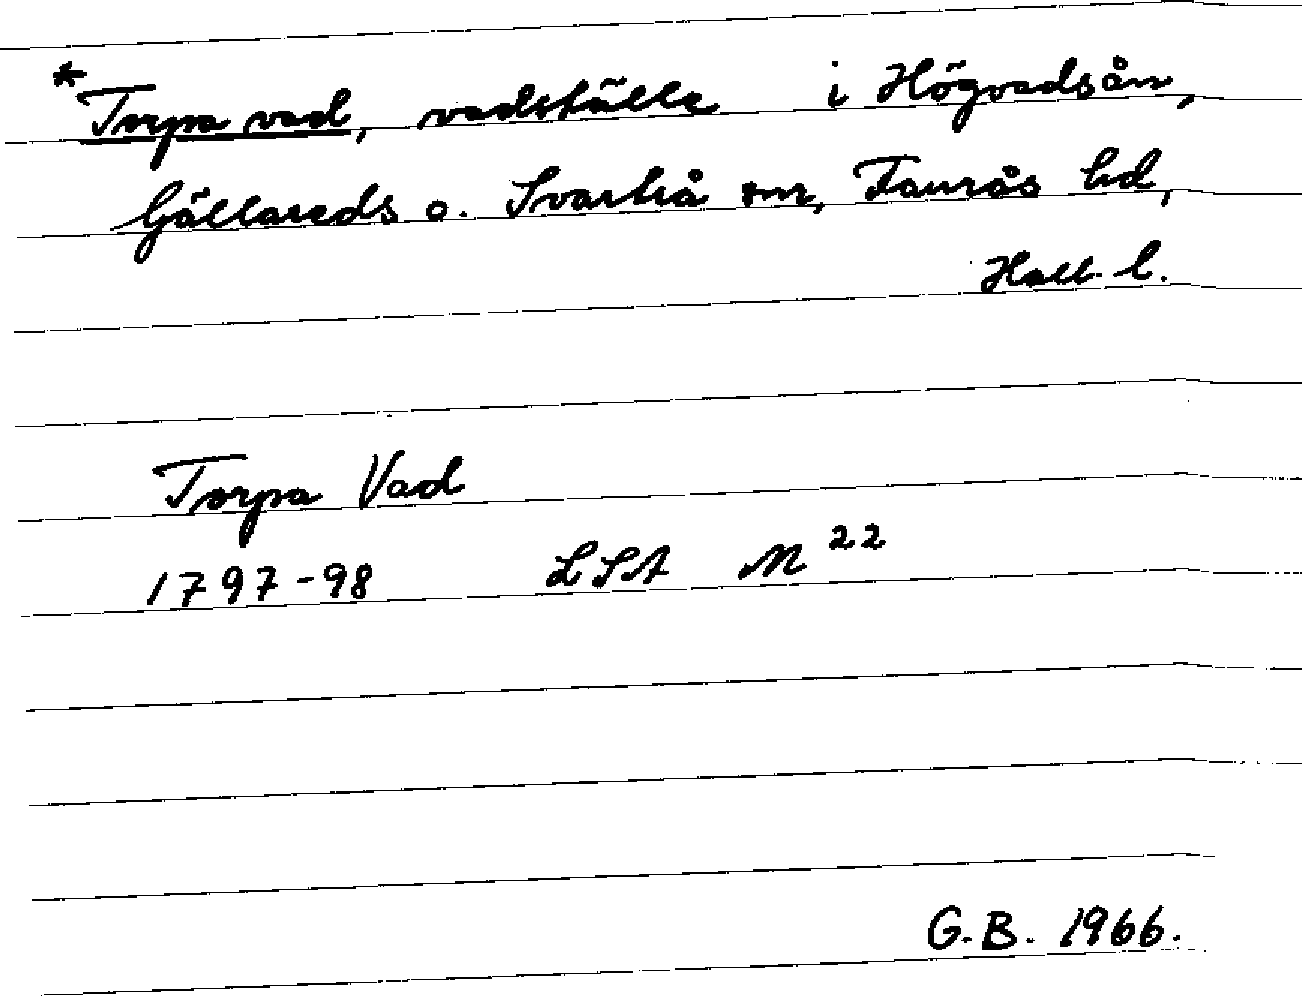 *Torpa vad, vadställe i Högvadsån,
Gällareds o. Svartrå snr, Faurås hd,
Hall. l.
Torpa Vad
1797-98 LSA M 22
G.B. 1966.